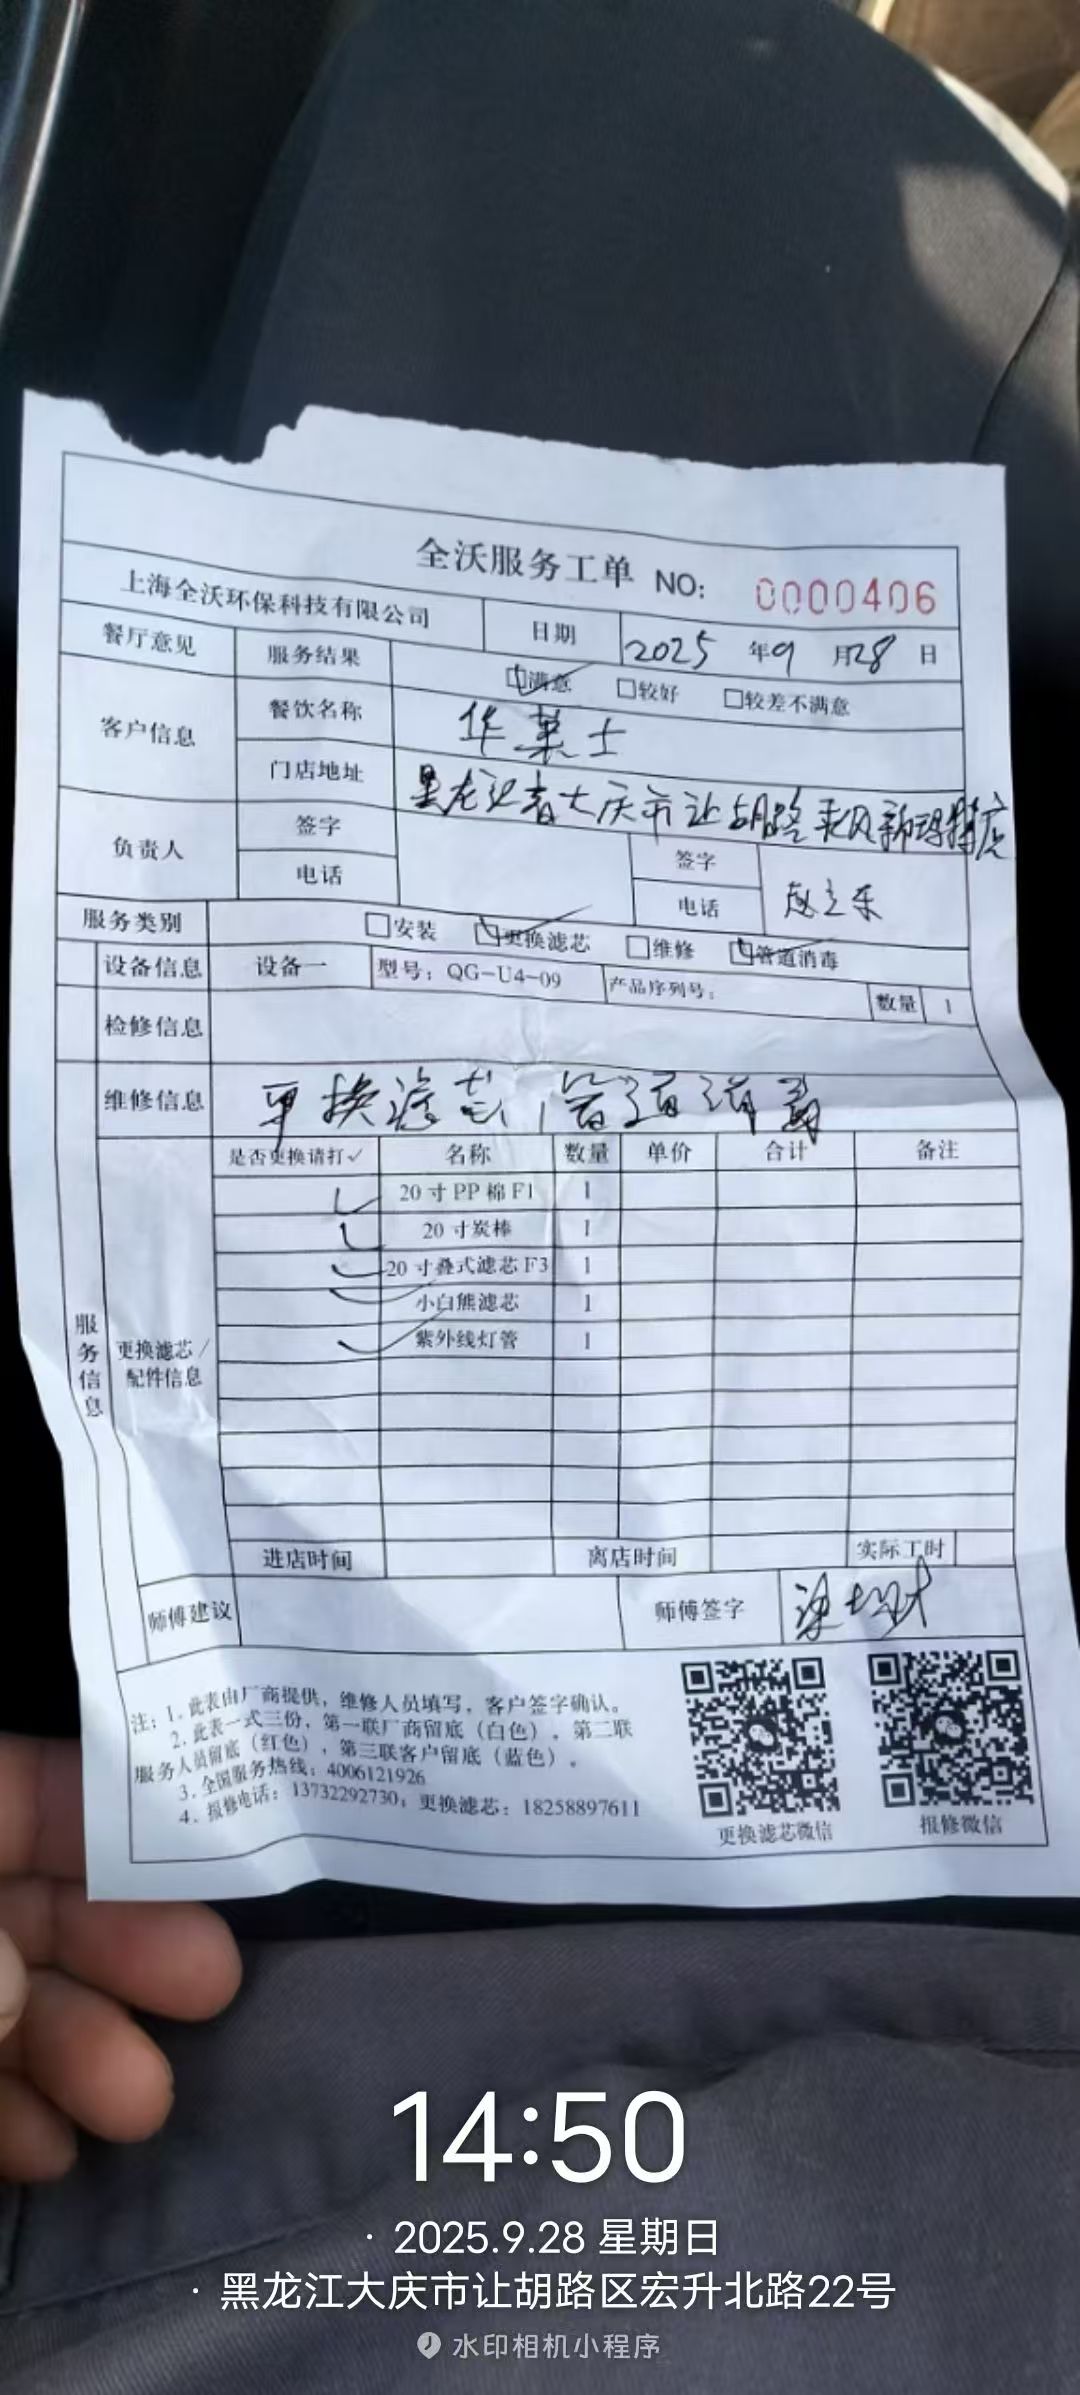 全沃服务工单 NO: 0000406
上海全沃环保科技有限公司 日期 2025 年 9 月 28 日
餐厅意见 服务结果 满意 较好 较差不满意
客户信息 餐饮名称 华莱士
门店地址 黑龙江省大庆市让胡路乘风新玛特店
负责人 签字 签字
电话 电话
服务类别 安装 更换滤芯 维修 管道消毒
设备信息 设备一 型号：QG-U4-09 产品序列号： 数量 1
检修信息
维修信息 更换滤芯，管道消毒
服务信息
更换滤芯/
配件信息
是否更换请打✓ 名称 数量 单价 合计 备注
✓ 20寸PP棉F1 1
✓ 20寸炭棒 1
✓ 20寸叠式滤芯F3 1
✓ 小白熊滤芯 1
✓ 紫外线灯管 1
进店时间 离店时间 实际工时
师傅建议 师傅签字
注：1. 此表由厂商提供，维修人员填写，客户签字确认。
2. 此表一式三份，第一联厂商留底（白色），第二联
服务人员留底（红色），第三联客户留底（蓝色）。
3. 全国服务热线：4006121926
4. 报修电话：13732292730；更换滤芯：18258897611
更换滤芯微信 报修微信
14:50
· 2025.9.28 星期日
· 黑龙江大庆市让胡路区宏升北路22号
水印相机小程序